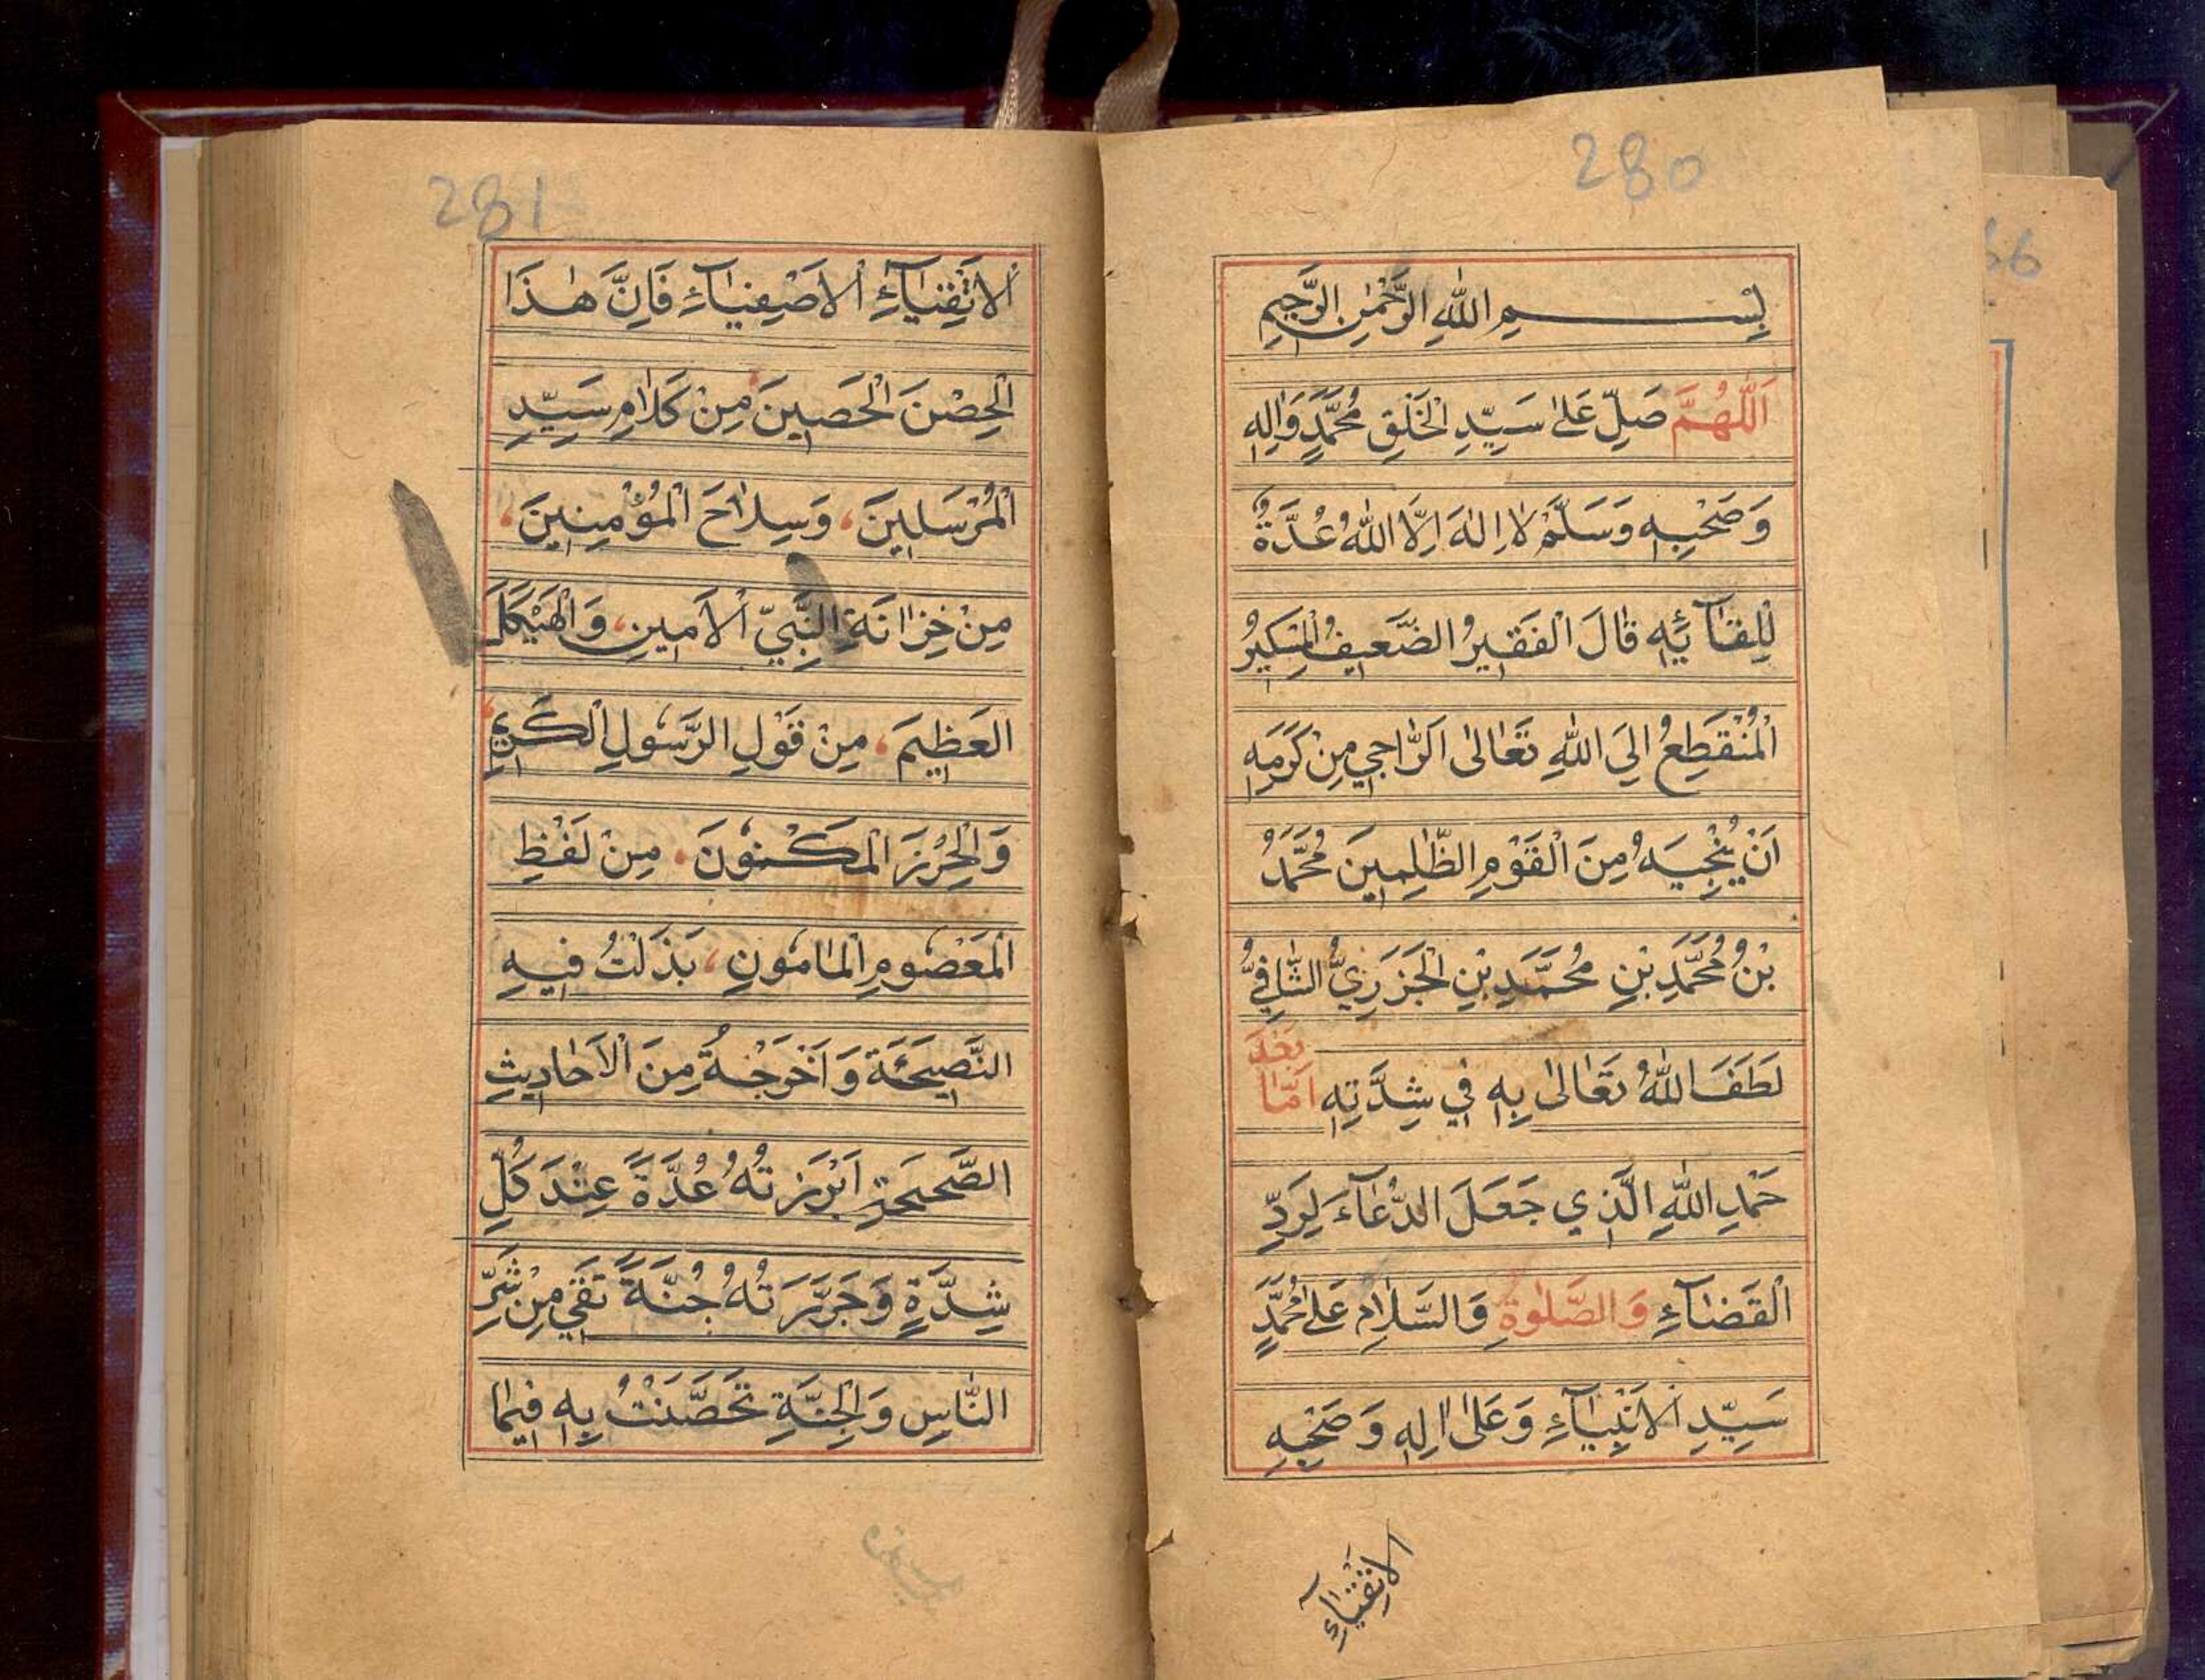 280
بِسْمِ اللهِ الرَّحْمٰنِ الرَّحِيمِ
اَللّٰهُمَّ صَلِّ عَلٰى سَيِّدِ الْخَلْقِ مُحَمَّدٍ وَاٰلِهٖ
وَصَحْبِهٖ وَسَلَّمْ لَا اِلٰهَ اِلَّا اللهُ عُدَّةٌ
لِلِقَآئِهٖ قَالَ الْفَقِيرُ الضَّعِيفُ الْمِسْكِينُ
الْمُنْقَطِعُ اِلَى اللهِ تَعَالٰى اَلرَّاجِي مِنْ كَرَمِهٖ
اَنْ يُنْجِيَهُ مِنَ الْقَوْمِ الظّٰلِمِينَ مُحَمَّدُ
بْنُ مُحَمَّدِ بْنِ مُحَمَّدِ بْنِ الْجَزَرِيُّ الشَّافِعِيُّ
لَطَفَ اللهُ تَعَالٰى بِهٖ فِي شِدَّتِهٖ اَمَّا بَعْدَ
حَمْدِ اللهِ الَّذِي جَعَلَ الدُّعَآءَ لِرَدِّ
الْقَضَآءِ وَالصَّلٰوةُ وَالسَّلَامُ عَلٰى مُحَمَّدٍ
سَيِّدِ الْاَنْبِيَآءِ وَعَلٰى اٰلِهٖ وَصَحْبِهٖ
الاتقيآء
281
الْاَتْقِيَآءِ الْاَصْفِيَآءِ فَاِنَّ هٰذَا
الْحِصْنَ الْحَصِينَ، مِنْ كَلَامِ سَيِّدِ
الْمُرْسَلِينَ، وَسِلَاحَ الْمُؤْمِنِينَ،
مِنْ خِزَانَةِ النَّبِيِّ الْاَمِينِ، وَالْهَيْكَلَ
الْعَظِيمَ، مِنْ قَوْلِ الرَّسُولِ الْكَرِيمِ،
وَالْحِرْزَ الْمَكْنُونَ، مِنْ لَفْظِ
الْمَعْصُومِ الْمَامُونِ، بَذَلْتُ فِيهِ
النَّصِيحَةَ وَاَخْرَجْتُهُ مِنَ الْاَحَادِيثِ
الصَّحِيحَةِ اَبْرَزْتُهُ عُدَّةً عِنْدَ كُلِّ
شِدَّةٍ وَجَرَّدْتُهُ جُنَّةً تَقِي مِنْ شَرِّ
النَّاسِ وَالْجِنَّةِ تَحَصَّنْتُ بِهٖ فِيمَا
66